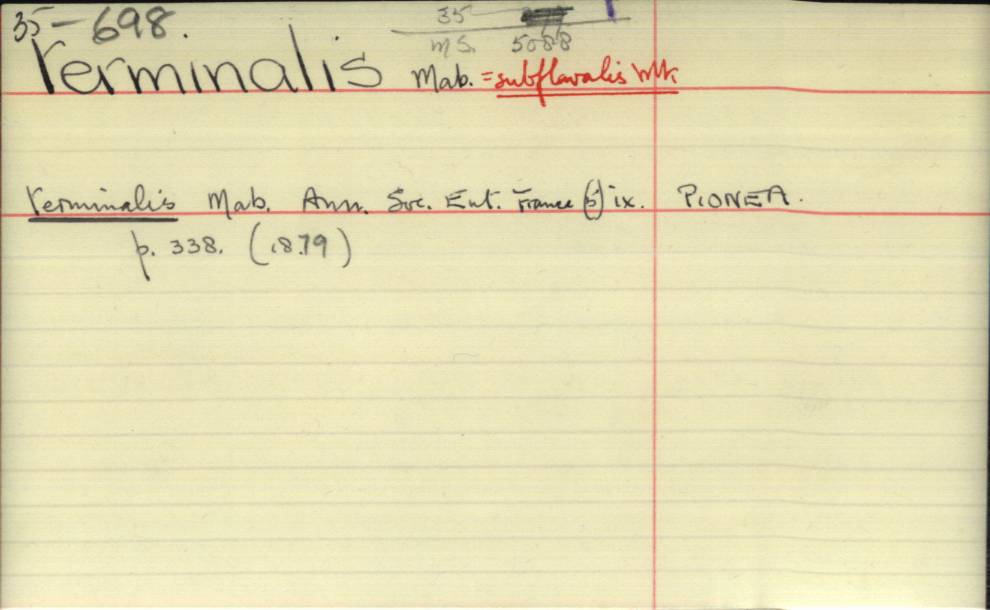 35-698.
35
MS. 5088
Terminalis Mab. = subflavalis Wlk.
terminalis Mab. Ann. Soc. Ent. France (5) ix. PIONEA.
p. 338. (1879)